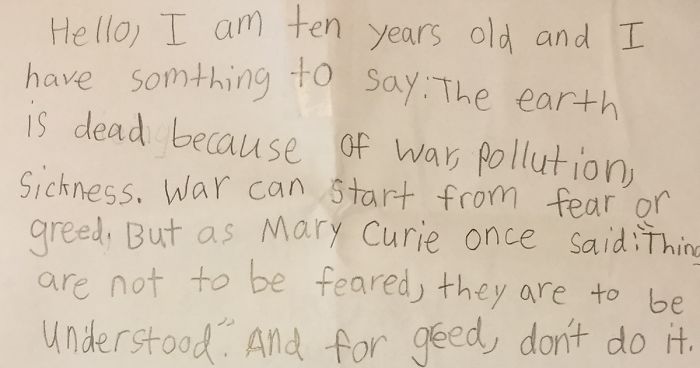 Hello, I am ten years old and I
have somthing to say: The earth
is dead because of war, pollution,
Sickness. War can start from fear or
greed. But as Mary Curie once said: "Thing
are not to be feared, they are to be
Understood". And for geed, don't do it.